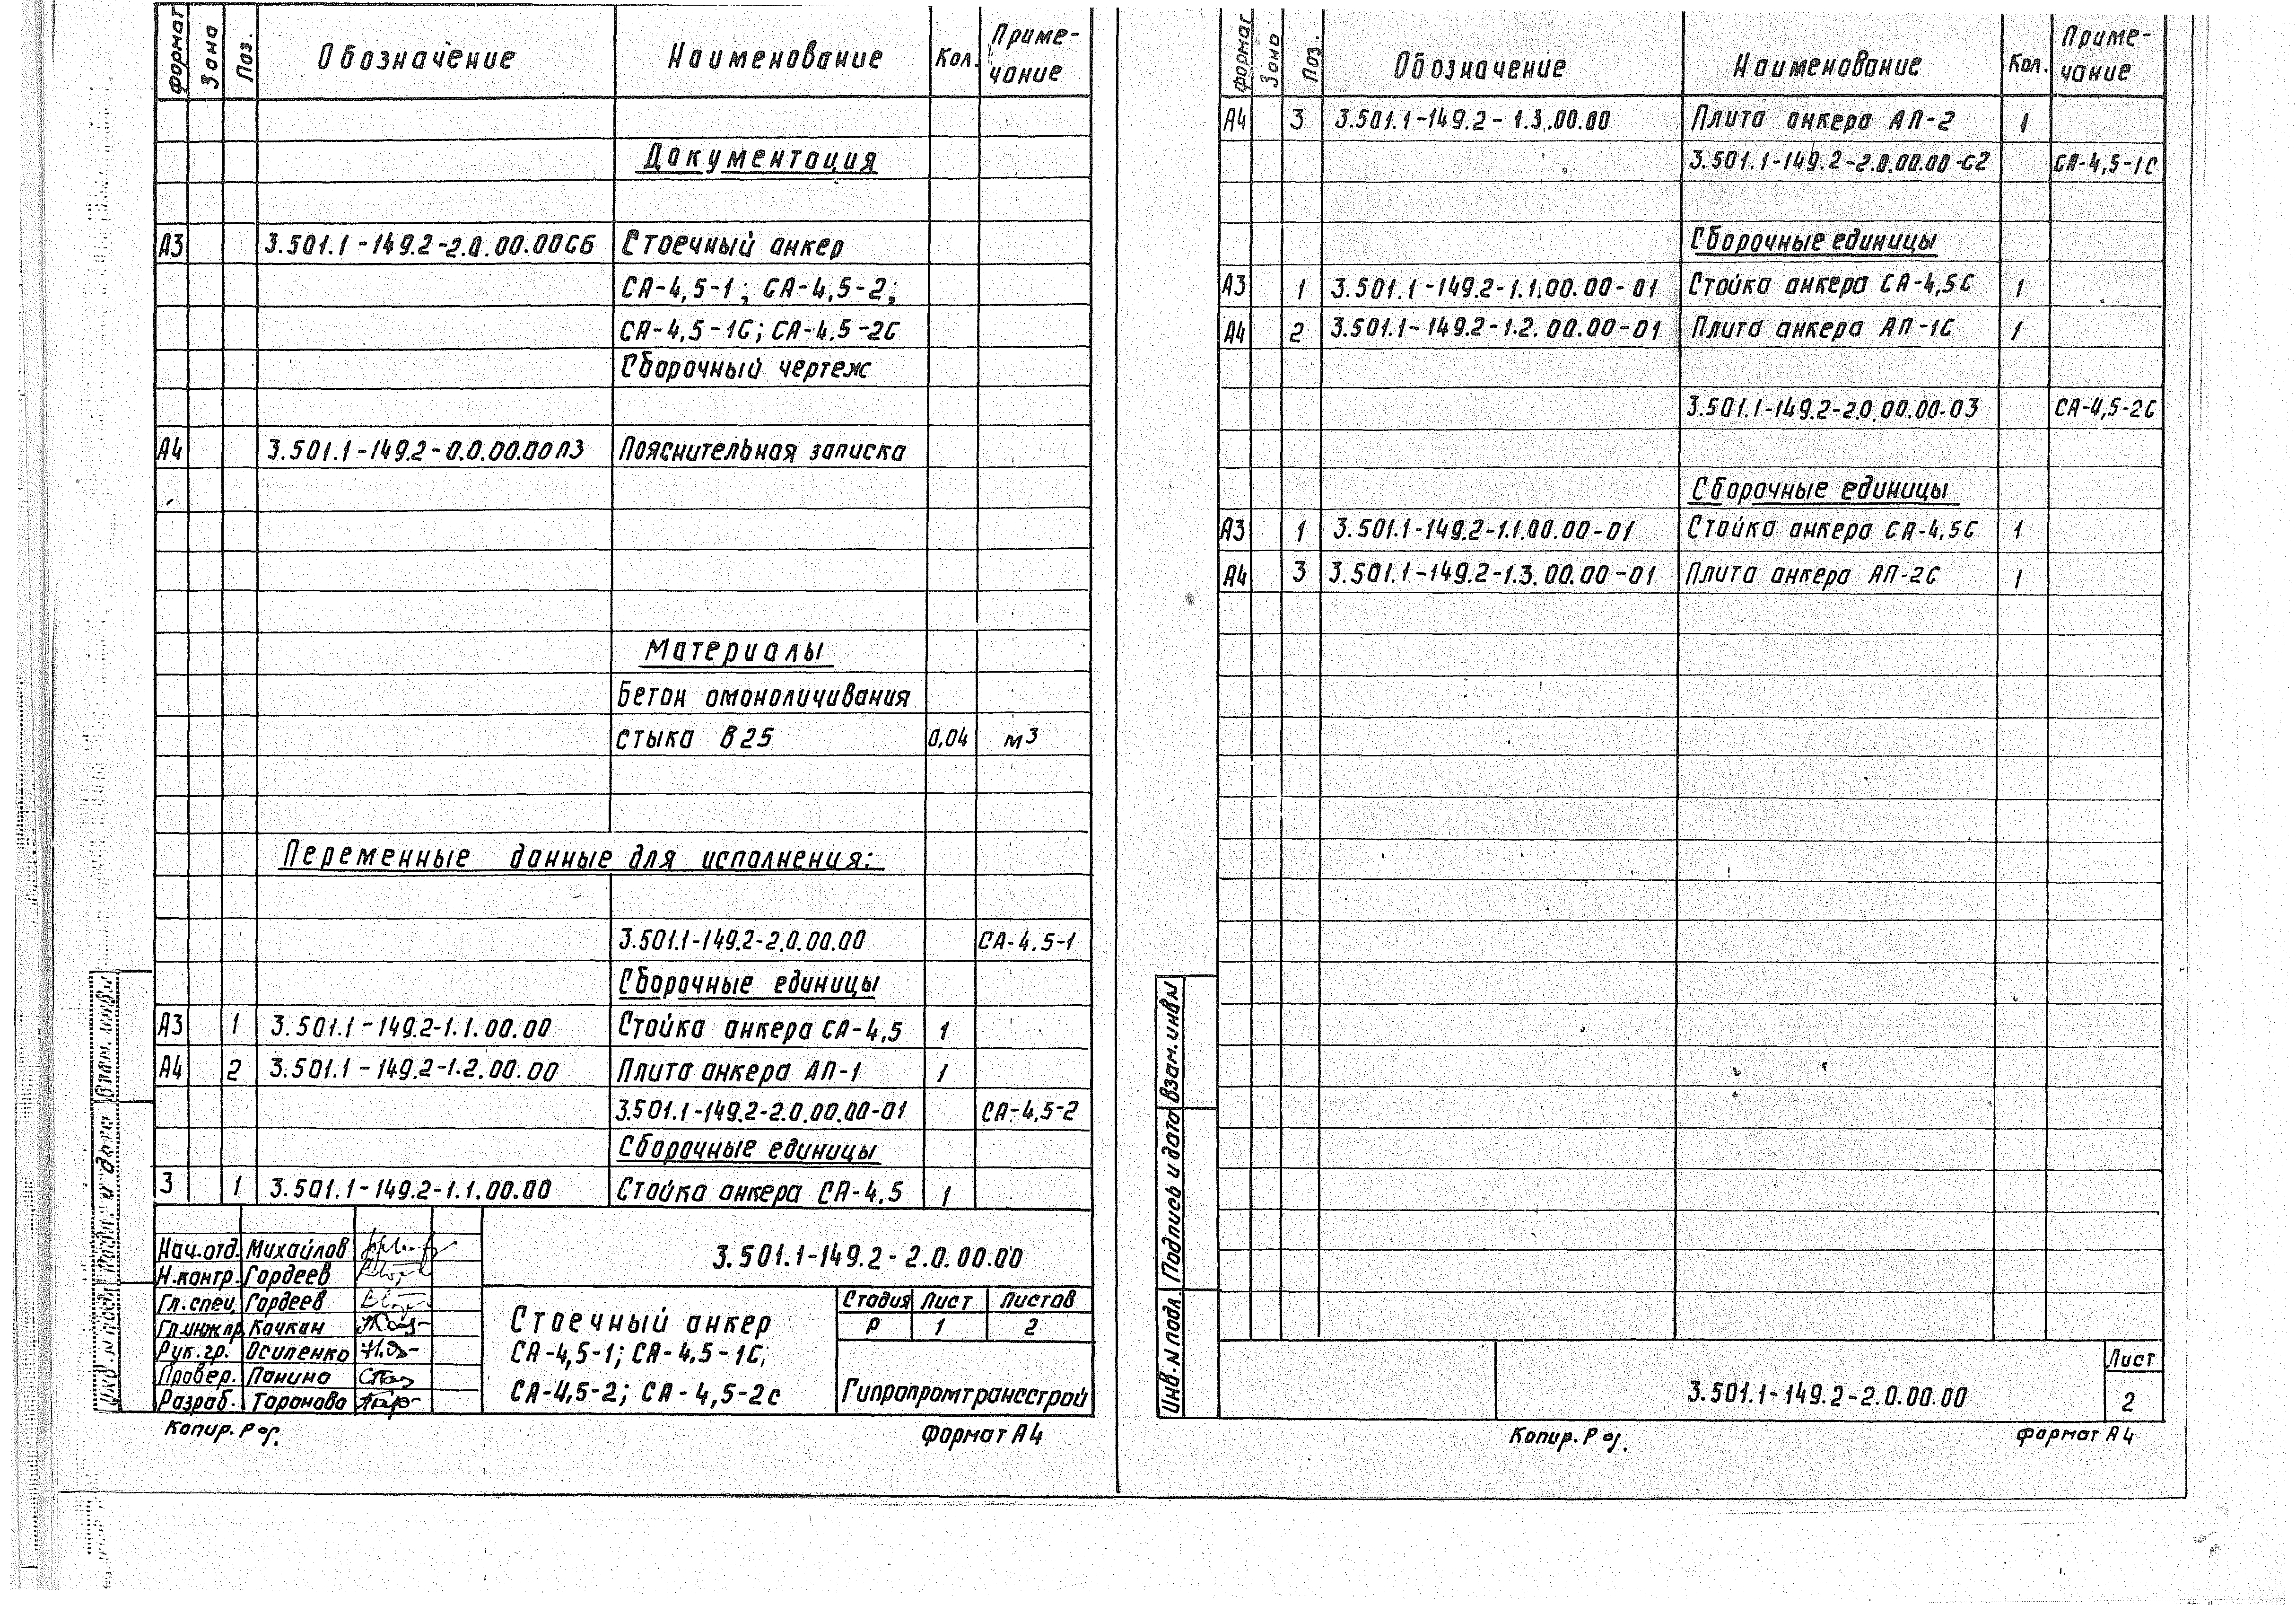 Формат Зона Поз. Обозначение Наименование Кол. Приме-
чание
Документация
А3 3.501.1-149.2-2.0.00.00СБ Стоечный анкер
СА-4,5-1; СА-4,5-2;
СА-4,5-1С; СА-4,5-2С
Сборочный чертеж
А4 3.501.1-149.2-0.0.00.00ПЗ Пояснительная записка
Материалы
Бетон омоноличивания
стыка В25 0,04 м3
Переменные данные для исполнения:
3.501.1-149.2-2.0.00.00 СА-4,5-1
Сборочные единицы
А3 1 3.501.1-149.2-1.1.00.00 Стойка анкера СА-4,5 1
А4 2 3.501.1-149.2-1.2.00.00 Плита анкера АП-1 1
3.501.1-149.2-2.0.00.00-01 СА-4,5-2
Сборочные единицы
3 1 3.501.1-149.2-1.1.00.00 Стойка анкера СА-4,5 1
Нач.отд. Михайлов
Н.контр. Гордеев
Гл.спец. Гордеев
Гл.инж.пр. Качкан
Рук.гр. Осипенко
Провер. Панина
Разраб. Таранова
3.501.1-149.2-2.0.00.00
Стоечный анкер
СА-4,5-1; СА-4,5-1С;
СА-4,5-2; СА-4,5-2с
Стадия Лист Листов
Р 1 2
Гипропромтрансстрой
Копир. Рог.
Формат А4
Формат Зона Поз. Обозначение Наименование Кол. Приме-
чание
А4 3 3.501.1-149.2-1.3.00.00 Плита анкера АП-2 1
3.501.1-149.2-2.0.00.00-02 СА-4,5-1С
Сборочные единицы
А3 1 3.501.1-149.2-1.1.00.00-01 Стойка анкера СА-4,5С 1
А4 2 3.501.1-149.2-1.2.00.00-01 Плита анкера АП-1С 1
3.501.1-149.2-2.0.00.00-03 СА-4,5-2С
Сборочные единицы
А3 1 3.501.1-149.2-1.1.00.00-01 Стойка анкера СА-4,5С 1
А4 3 3.501.1-149.2-1.3.00.00-01 Плита анкера АП-2С 1
Инв.N подл. Подпись и дата Взам.инв.N
3.501.1-149.2-2.0.00.00
Лист
2
Копир. Рог.
Формат А4